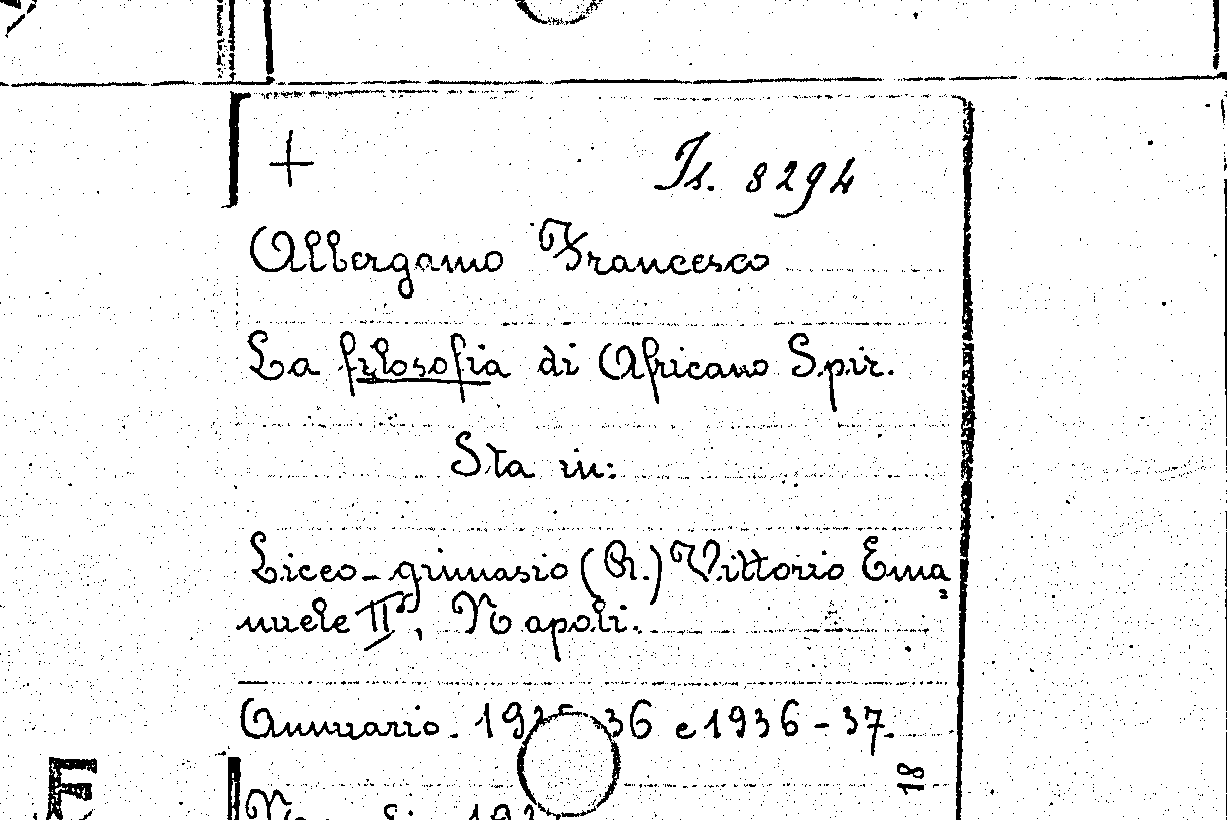 + Is. 8294
Albergamo Francesco
La filosofia di Africano Spir.
Sta in:
Liceo-ginnasio (R.) Vittorio Ema
nuele II°, Napoli.
Annuario. 1935-36 e 1936-37.
18
E